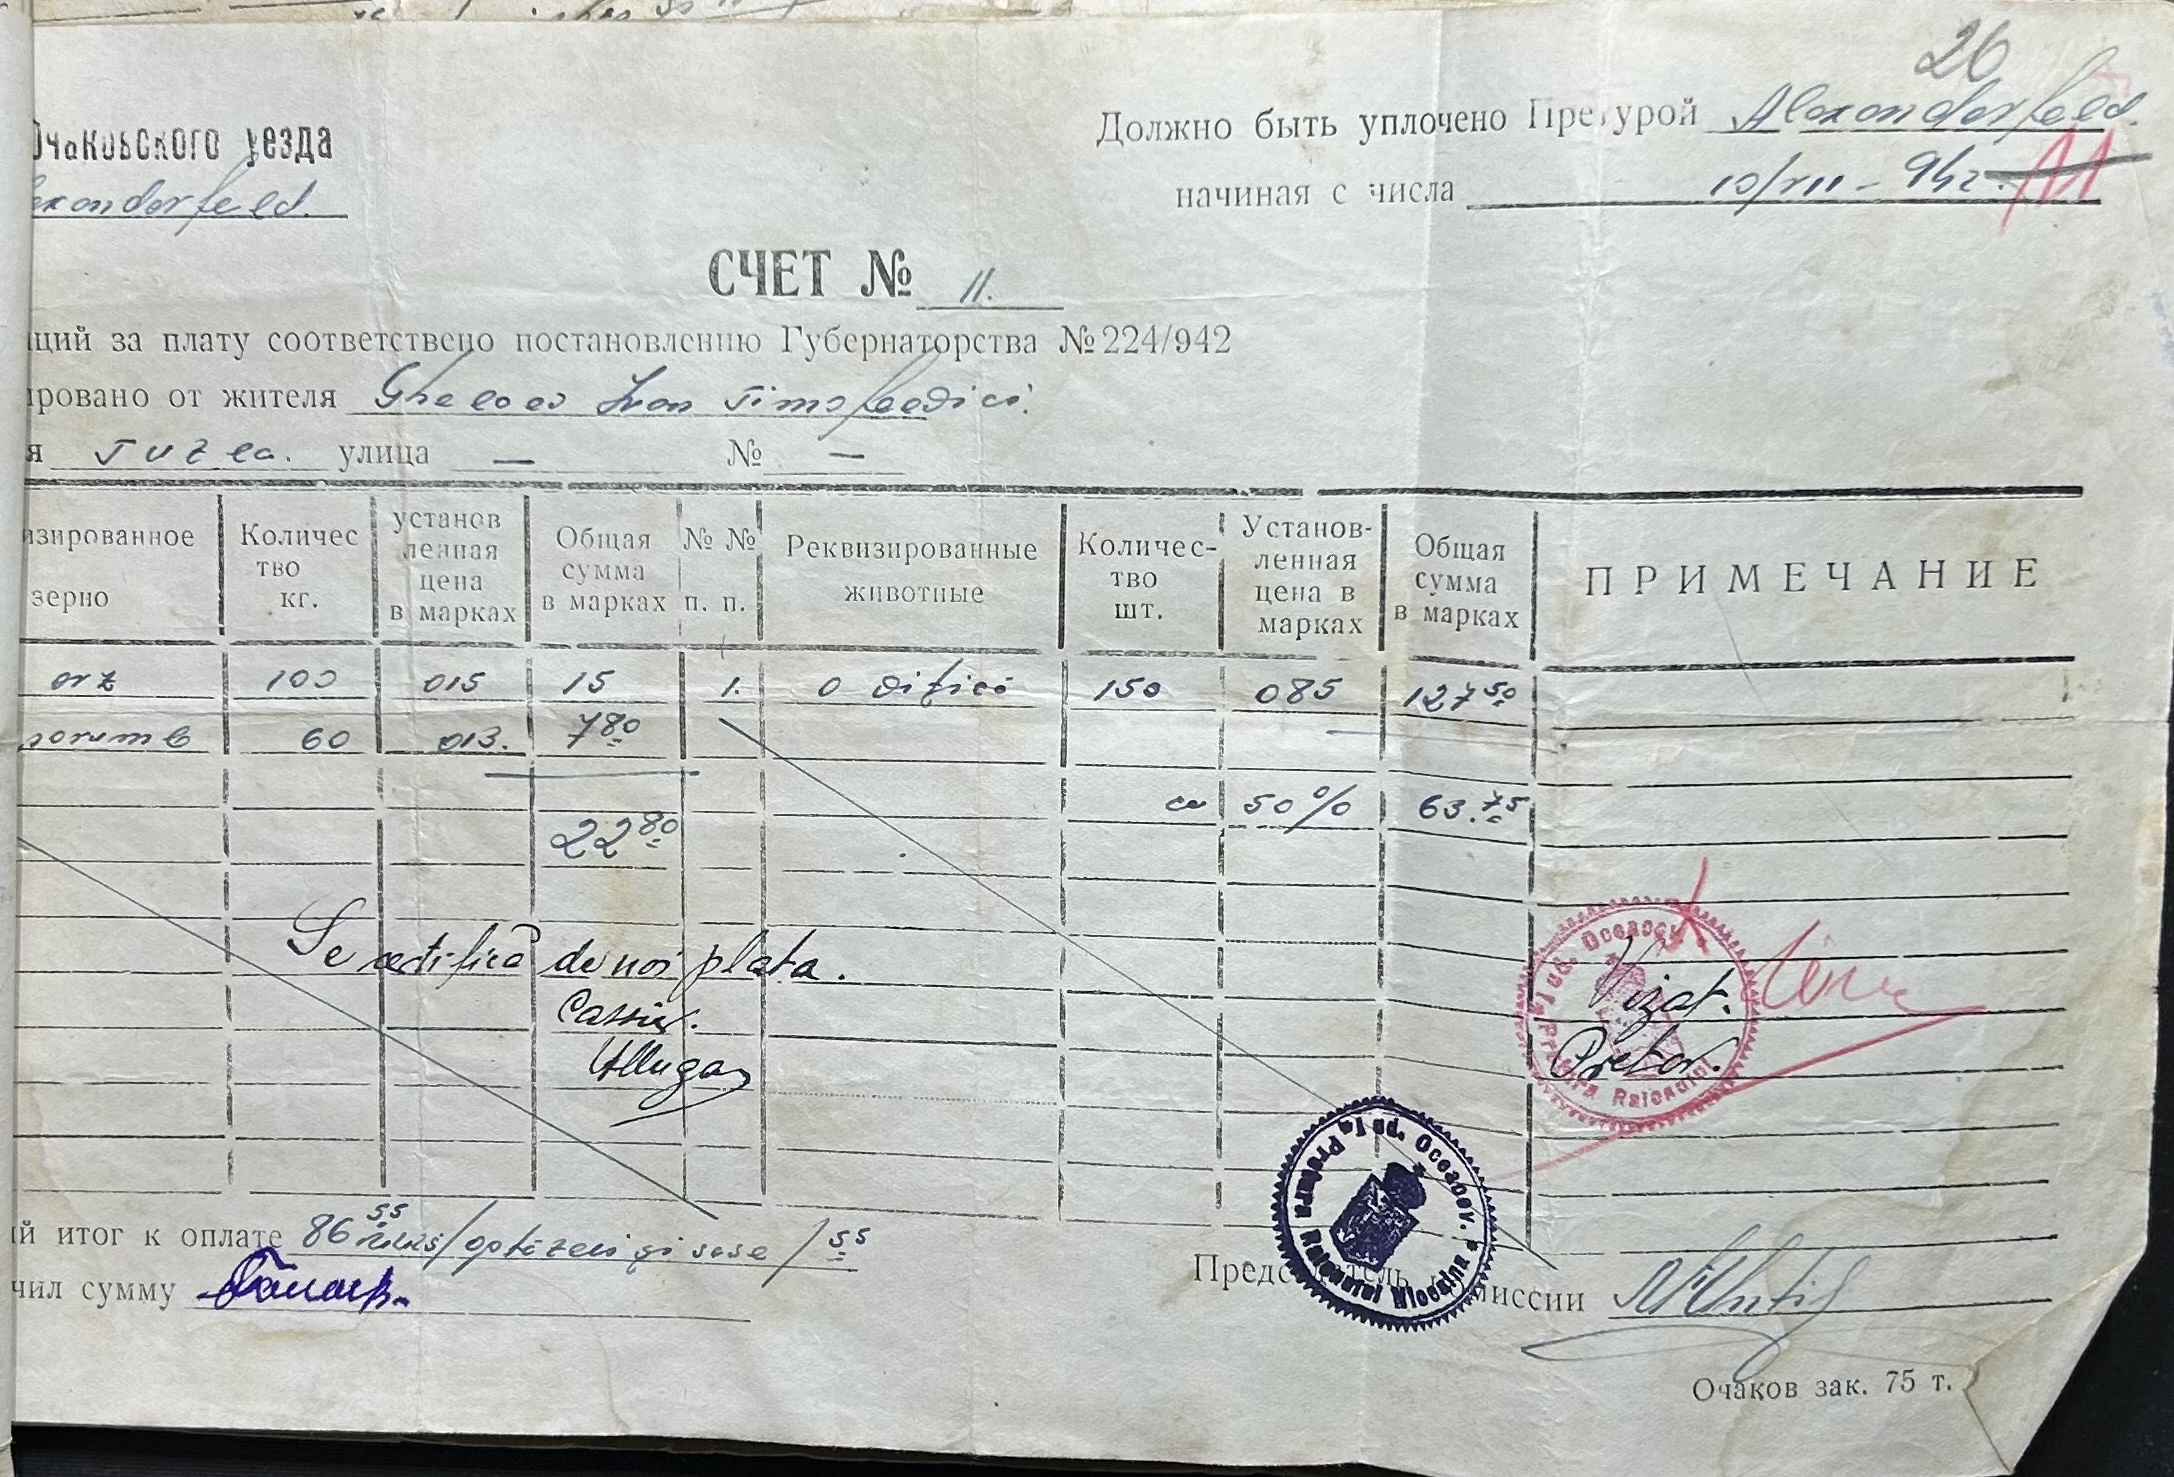 26
Очаковского уезда
Должно быть уплочено Претурой Alexanderfeld.
exanderfeld.
начиная с числа 10/VII - 942. 11
СЧЕТ № 11.
щий за плату соответствено постановлению Губернаторства № 224/942
ировано от жителя Ivan Timofeevici.
я Tuzla. улица — № —
изированное зерно
Количес тво кг.
установ ленная цена в марках
Общая сумма в марках
№ № п. п.
Реквизированные животные
Количес- тво шт.
Установ- ленная цена в марках
Общая сумма в марках
ПРИМЕЧАНИЕ
orz 100 015 15 1. o vițică 150 085 127 50
porumb 60 013. 7 80
cu 50% 63.75
22 80
Se certifică de noi plata.
Cassier.
Vizat.
Pretor.
Pretura Raionului Jud. Oceacov
й итог к оплате 86 55 mărci/optzeci și sase/55
чил сумму
Председатель комиссии
Очаков зак. 75 т.